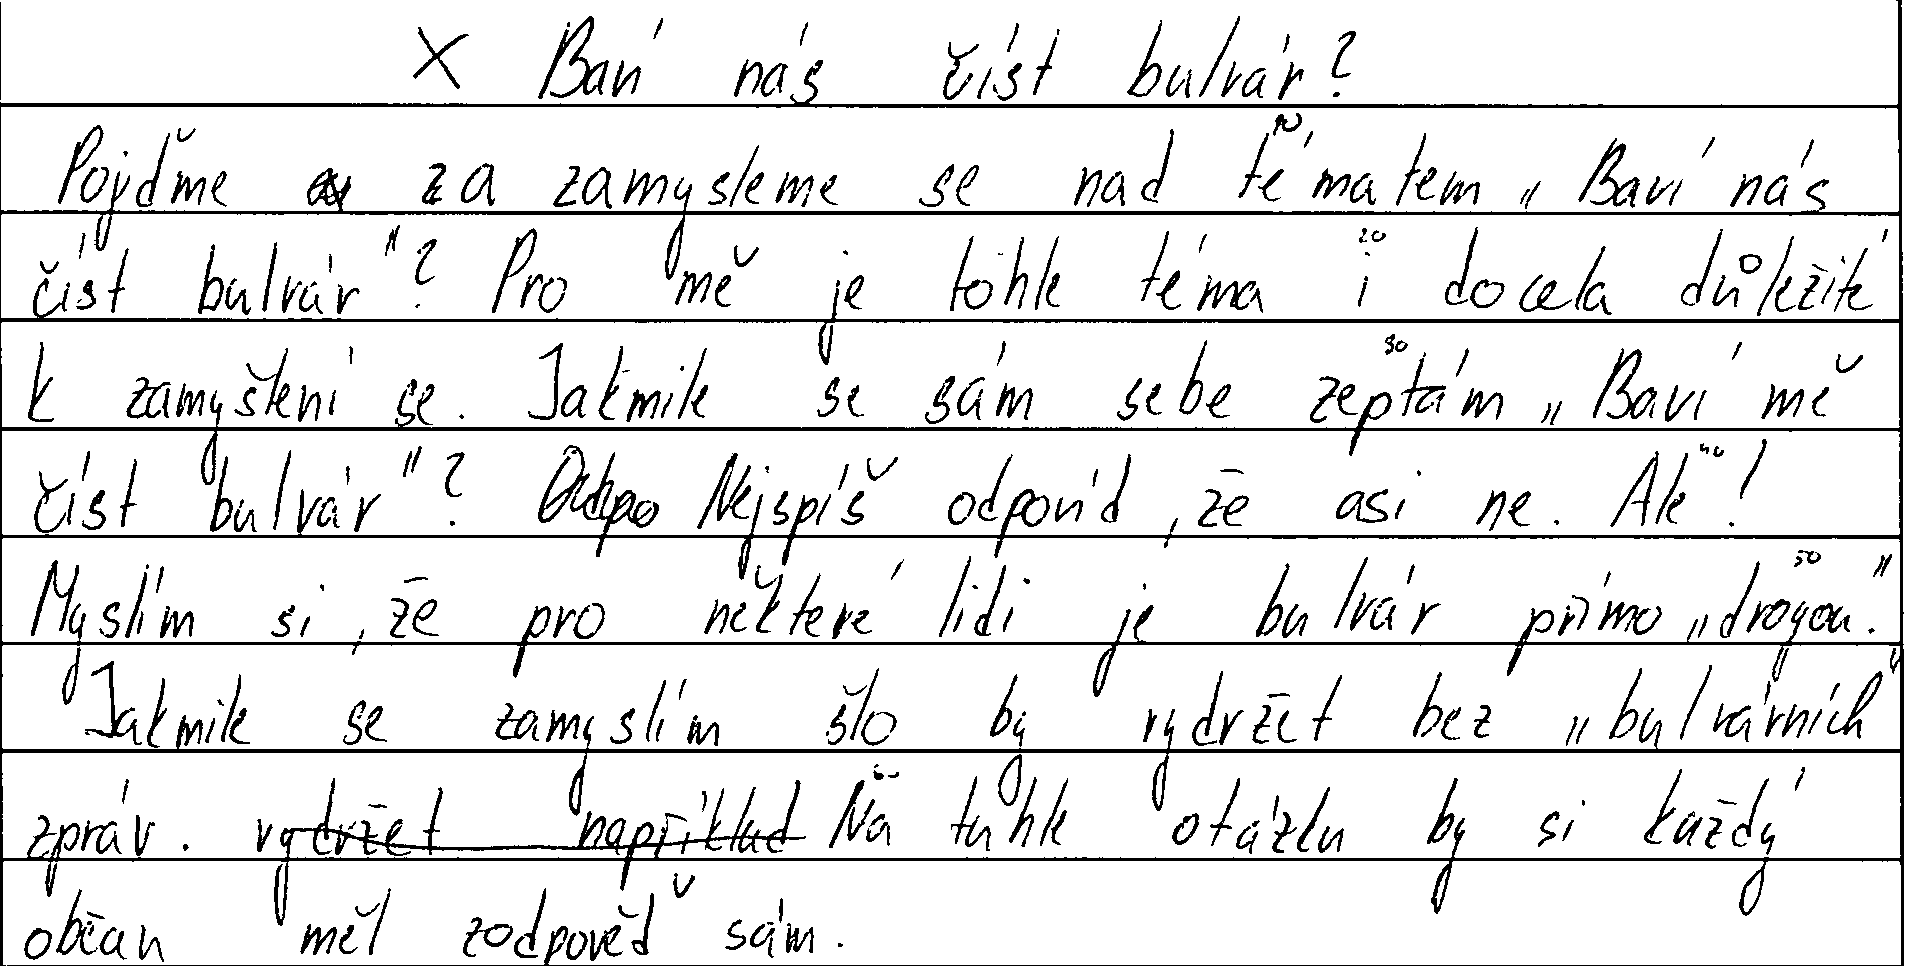 X Baví nás číst bulvár?
Pojďme za zamysleme se nad tématem „Baví nás
číst bulvár"? Pro mě je tohle téma i docela důležité
k zamyšlení se. Jakmile se sám sebe zeptám „Baví mě
číst bulvár"? Nejspíš odpovíd, že asi ne. Ale!
Myslím si, že pro některé lidi je bulvár přímo „drogou."
Jakmile se zamyslím šlo by vydržet bez „bulvárních"
zpráv. vydržet například Na tuhle otázku by si každý
občan měl zodpověď sám.